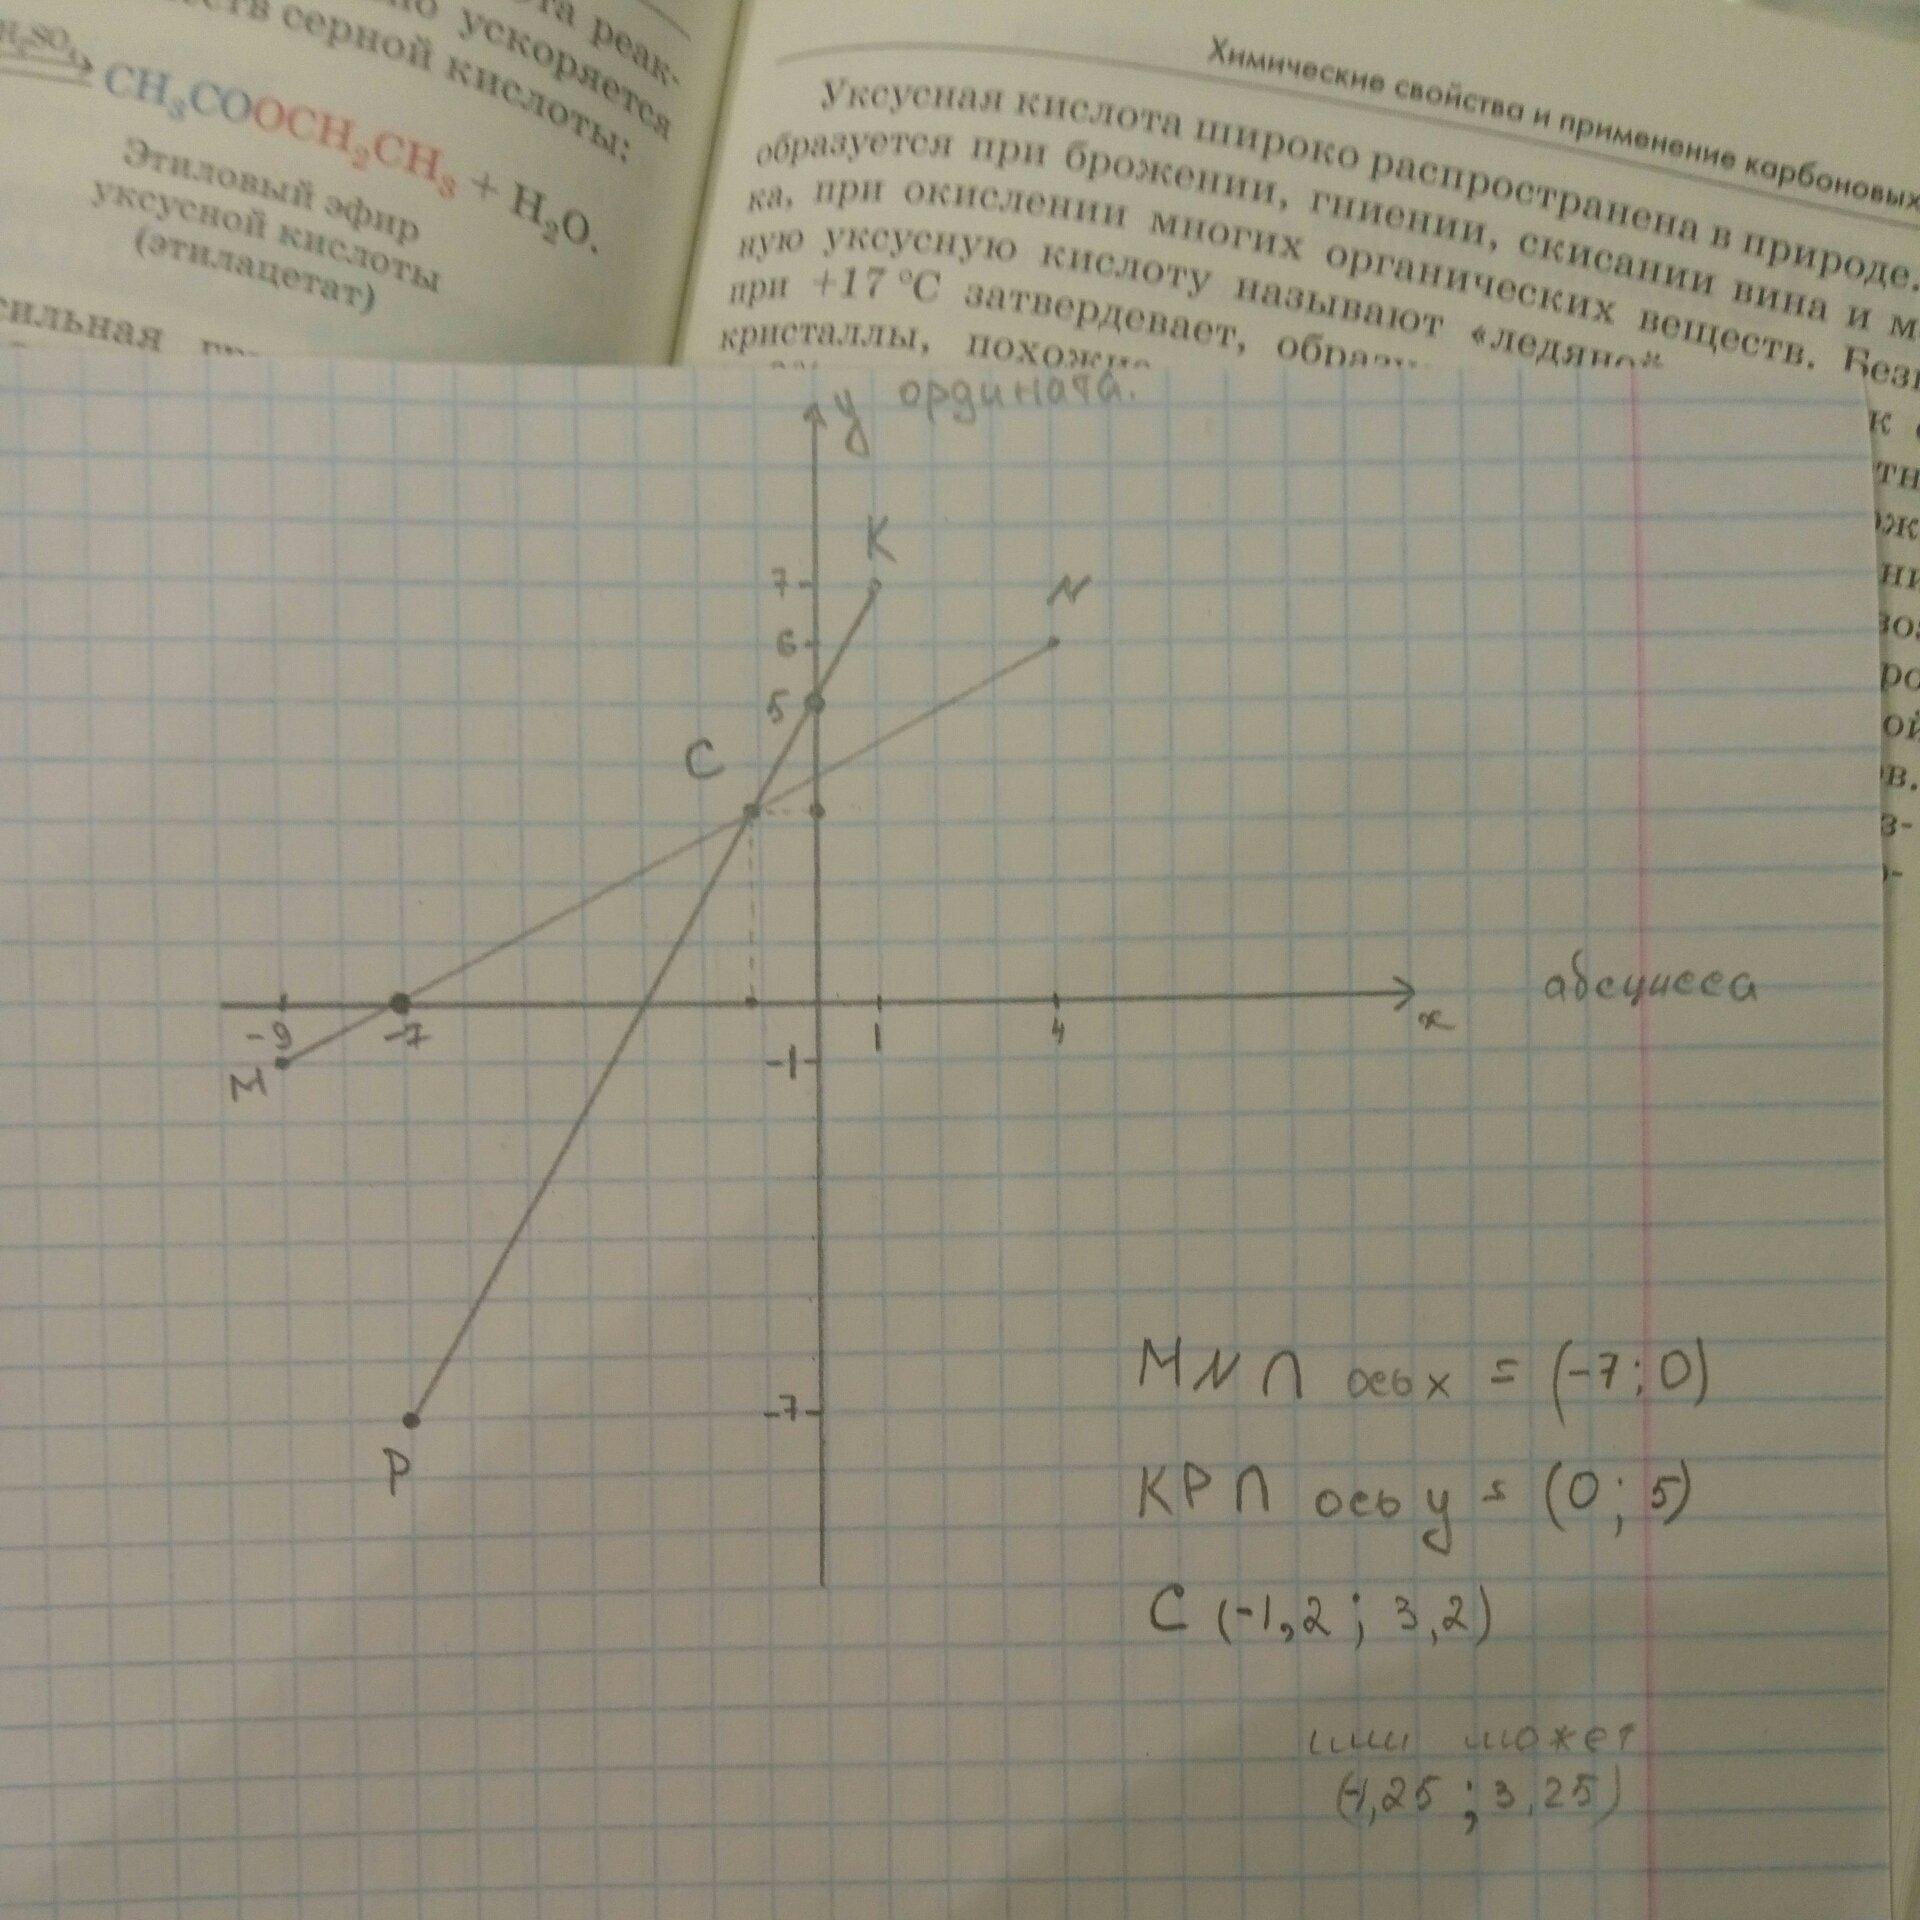 та реак-
но ускоряется
ств серной кислоты:
H₂SO₄
CH₃COOCH₂CH₃ + H₂O.
Этиловый эфир
уксусной кислоты
(этилацетат)
сильная
Химические свойства и применение карбоновых
Уксусная кислота широко распространена в природе.
образуется при брожении, гниении, скисании вина и м
ка, при окислении многих органических веществ. Без
ную уксусную кислоту называют «ледяной
при +17 °C затвердевает, образу
кристаллы, похожие
к
тн
ож
ни
воз
ро
ой
ов.
з-
y ордината.
K
7
N
6
5
C
абсцисса
-9
-7
1
4
x
M
-1
-7
P
MN ∩ ось x = (-7; 0)
KP ∩ ось y = (0; 5)
C (-1,2; 3,2)
или может
(-1,25; 3,25)